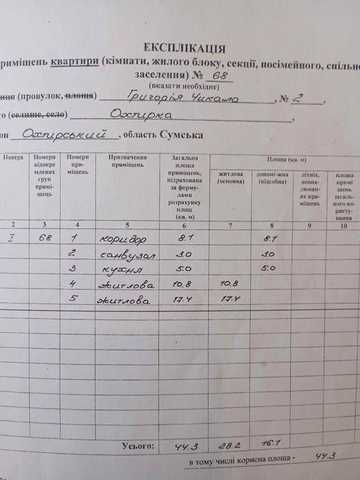 ЕКСПЛІКАЦІЯ
приміщень квартири (кімнати, жилого блоку, секції, посімейного, спільного
заселення) № 68
(вказати необхідне)
(провулок, площа) Григорія Чикала, № 2,
(селище, село) Охтирка
он Охтирський, область Сумська
Номера Номери відокремлених груп приміщень Номери приміщень Призначення приміщень Загальна площа приміщень, підрахована за формулами розрахунку площ (кв. м) Площа (кв. м)
житлова (основна) допоміжна (підсобна) літніх, неопалюваних приміщень площа приміщень загального користування
2 3 4 5 6 7 8 9 10
I 68 1 коридор 8.1 8.1
2 санвузол 3.0 3.0
3 кухня 5.0 5.0
4 житлова 10.8 10.8
5 житлова 17.4 17.4
Усього: 44.3 28.2 16.1
в тому числі корисна площа - 44.3